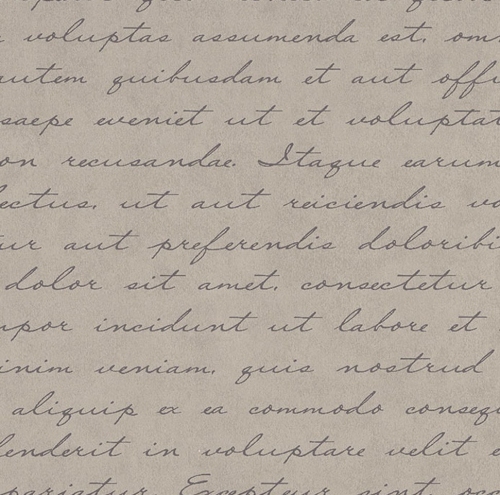 voluptas assumenda est, om
autem quibusdam et aut offi
saepe eveniet ut et voluptat
on recusandae. Itaque earum
ectus, ut aut reiciendis vo
ur aut preferendis doloribu
dolor sit amet, consectetur
mpor incididunt ut labore et
inim veniam, quis nostrud
aliquip ex ea commodo consequ
henderit in voluptare velit e
pariatur. Excepteur sint occ